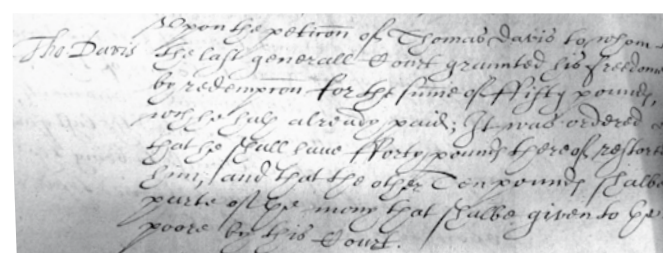 Upon the peticon of Thomas Davis to whom
Tho Davis the last generall Court graunted his freedome
by redempcon for the sume of ffifty pounds,
wch he hath already paid; It was ordered
that he shall have fforty pounds thereof restored
him, and that the other Ten pounds shalbe
parte of ye mony that shalbe given to ye
poore by this Court.